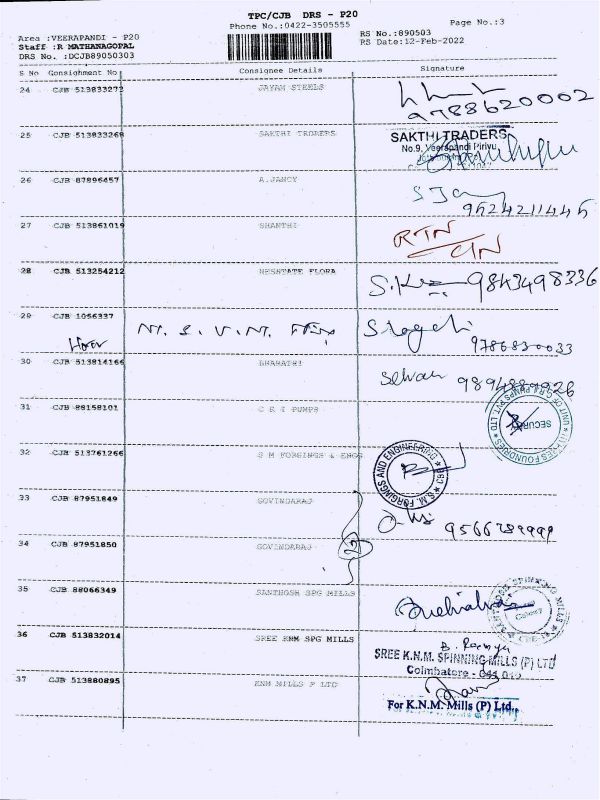 TPC/CJB DRS - P20
Phone No.:0422-3505555
Page No.:3
Area :VEERAPANDI - P20
Staff :R MATHANAGOPAL
DRS No. :DCJB89050303
RS No.:890503
RS Date:12-Feb-2022
S No Consignment No Consignee Details Signature
24 CJB 513833272 JAYAM STEELS
9788620002
25 CJB 513833268 SAKTHI TRDERS SAKTHI TRADERS
No.9, Veerapandi Pirivu
26 CJB 87896457 A.JANCY
9524211445
27 CJB 513861019 SHANTHI RTN
28 CJB 513254212 NESSTATE FLORA 9843498336
29 CJB 1056337 M. S. V. M.
9786830033
30 CJB 513814166 BHARATHI Selvan
31 CJB 88158101 C R I PUMPS SECURITY
32 CJB 513761266 S M FORGINGS & ENGG S.M. FORGINGS AND ENGINEERING
33 CJB 87951849 GOVINDARAJ
34 CJB 87951850 GOVINDARAJ 2
35 CJB 88066349 SANTHOSH SPG MILLS
36 CJB 513832014 SREE KNM SPG MILLS B. Ramya
SREE K.N.M. SPINNING MILLS (P) LTD
Coimbatore -
37 CJB 513880895 KNM MILLS P LTD
For K.N.M. Mills (P) Ltd.,